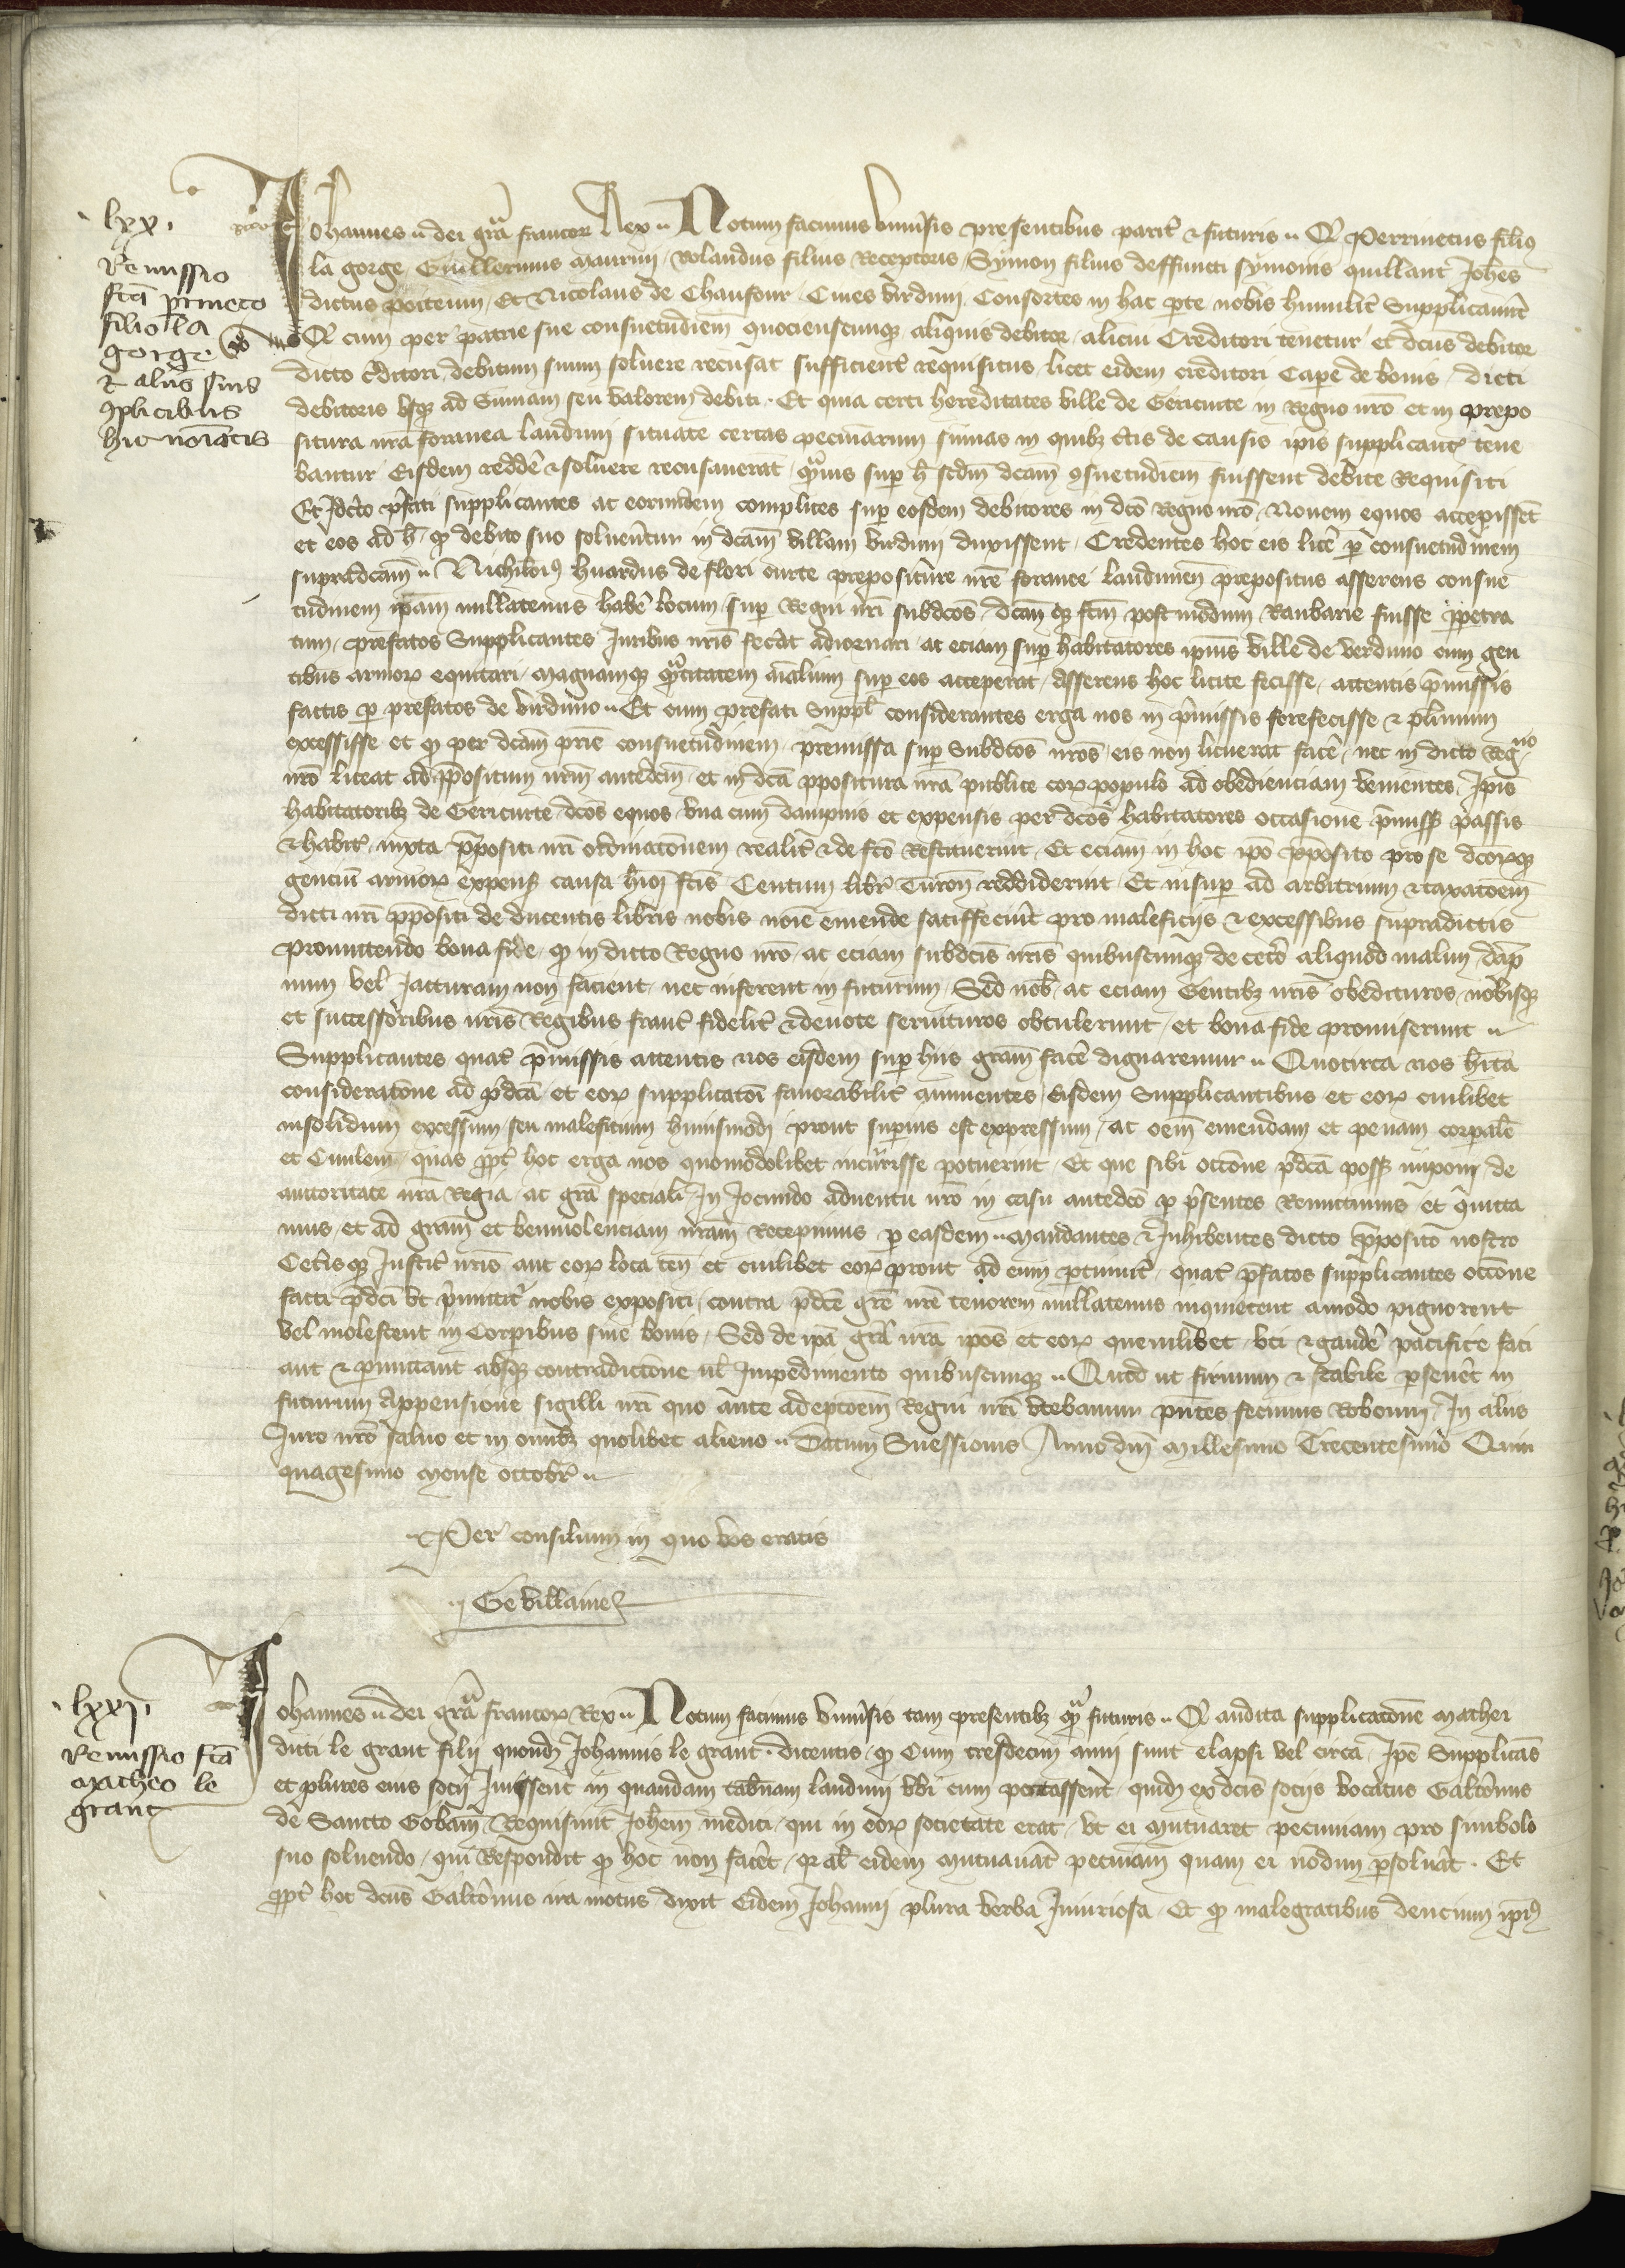 lxx.
Remissio
fc̄a p̄rineto
filio la
gorge
⁊ aliis suis
ꝯplicibus
hic noīatis
Johannes dei gr̄a francoꝝ Rex Notum facimus vniu̾sis presentibus parit̾ ⁊ futuris Qd̾ Perrinetus filiꝰ
la gorge Guillermus maurini Rolandus filius Receptoris Symon filius deffuncti symonis quillant Joh̄es
dictus poiteuin Et Nicolaus de Chaufour Ciues virduni Consortes in hac ꝑte nobis humilit̾ supplicauer̄t
Qd̾ cum per patrie sue consuetudinem̄ quociensciunqꝫ aliquis debitor alicui Creditori tenetur et dc̄us debitor
dicto c̾ditori debitum suum soluere recusat sufficient̾ requisitus licet eidem creditori capere de bonis dicti
debitoris vsqꝫ ad summam seu valorem debiti Et quia certi hereditates ville de Gericurte in Regno nr̄o et in prepo
situra nr̄a foranea laudun̄ situate certas pecuniarum sūmas in quibꝫ c̾tis de causis ip̄is supplicant̾ tene
bantur Eisdem redde̾ ⁊ soluere recusauerat quāuis suꝑ h̄ scdm̄ dc̄am ꝯsuetudinem fuissent debite Requisiti
Et Idc̾co p̄fati supplicantes ac eorumdem complices suꝑ eosdem debitores in dc̄o Regno nr̄o Nouem equos accepissēt
et eos ad h̄ ꝙ debito suo solueren̄tur in dc̄am villam virdun̄ duxissent Credentes hoc eis lice̾ ꝑ consuetudinem
supradc̄am Nichilomiꝰ huardus de flori curte prepositure nr̄e foranee laudunen̄ prepositus asserens consue
tudinem ip̄am nullatenus habe̾ locum suꝑ Regni nr̄i subdc̄os dc̄am qꝫ fc̄m postmodum Raubarie fuisse ꝑpetra
tum prefatos supplicantes Juribus nr̄is fecit adiornari ac eciam suꝑ habitatores ip̄ius ville de verduno cum gen
tibus armoꝝ equitari magnamqꝫ quātitatem aīalium suꝑ eos acceperat asserens hoc licite fecisse attentis p̄missis
factis ꝑ prefatos de virduno Et cum prefati suppl̄ considerantes erga nos in p̄missis forefecisse ⁊ plimum
excessisse et ꝙ per dc̄am pr̄ie consuetudinem premissa suꝑ subdc̄os nr̄os eis non licuerat face̾ nec in dicto Regno
nr̄o liceat ad p̄positum nr̄m antedcm̄ et in dc̄a p̄positura nr̄a publice coꝝ populo ad obedienciam venientes Ip̄is
habitatoribꝫ de Gericurte dc̄os equos vna cum dampnis et expensis per dc̄os habitatores occasione p̄missꝫ passis
⁊ habit̾ iuxta p̄positi nr̄i ordinatōnem realit̾ ⁊ de fc̄o Restituerunt Et eciam in hoc ip̄o p̄posito pro se dc̄oꝝqꝫ
gencium armoꝝ expens̾ causa hmōi fc̄is Centum libr̾ Turon̄ reddiderint Et insuꝑ ad arbitrium ⁊ taxatōem
dicti nr̄i p̄positi de ducentis libris nobis noīe emende satisfecerīt pro maleficijs ⁊ excessibus supradictis
promittendo bona fide ꝙ in dicto Regno nr̄o ac eciam subdc̄is nr̄is quibuscumqꝫ de cete̾o aliquod malum dāp
num vel Jacturam non facient nec inferent in futurum Sed nob̄ ac eciam Gentibꝫ nr̄is obedituros nobisqꝫ
et successoribus nr̄is Regibus franc̾ fidelit̾ ⁊ deuote seruituros obtulerunt et bona fide promiserunt
Supplicantes quat̾ p̄missis attentis nos eisdem suꝑ hiis gram̄ face̾ dignaremur Quocirca nos hīta
consideratōne ad p̄dc̄a et eoꝝ supplicatōi fauorabilit̾ annuentes Eisdem supplicantibus et eoꝝ cuilibet
insolidum excessum seu maleficium huiusmodi prout suꝑius est expressum ac oēm emendam et penam corꝑalē
et Ciuilem quas ꝓpt̾ hoc erga nos quomodolibet incurrisse potuerint Et que sibi occōne p̄dc̄a possꝫ imponi de
auctoritate nr̄a Regia ac gr̄a speciali In Jocundo aduentu nr̄o in casu antedc̄o ꝑ p̄sentes Remittimus et quitta
mus et ad gram̄ et beniuolenciam nr̄am Recepimus ꝑ easdem Mandantes ⁊ Inhibentes dicto p̄posito nostro
Cet̾isqꝫ Justic̾ nr̄is aut eoꝝ loca ten̄ et cuilibet eoꝝ prout ad eum ꝑtinuit̾ quat̾ p̄fatos supplicantes occōne
facti p̄dc̄i vt p̄mittit̾ nobis expositi contra p̄dc̄e gr̄e nr̄e tenorem nullatenus inquietent amodo pignorent
vel molestent in Corꝑibus siue bonis Sed de ip̄a gr̄a nr̄a ip̄os et eoꝝ quemlibet vti ⁊ gaude̾ pacifice faci
ant ⁊ ꝑmittant absqꝫ contradictōne ul̄ Impedimento quibuscumqꝫ Quod ut firmum ⁊ stabile ꝑseuēt in
futurum Appensione sigilli nr̄i quo ante adeptōem Regni nr̄i vtebamur pn̄tes fecimus roborari In aliis
Jure nr̄o saluo et in omnibꝫ quolibet alieno Datum Suessionis Anno dn̄i Millesimo Trecentesimo Quin
quagesimo Mense octobr̾
Per consilium in quo vos eratis
Ge villaine
lxxj.
Remissio fc̄a
Matheo le
grant
Johannes dei gr̄a francoꝝ Rex Notum facimus vniu̾sis tam presentibꝫ quā futuris Qd̾ audita supplicatōne Mathei
dicti le grant filij quondꝫ Johannis le grant dicentis ꝙ cum tresdecim anni sunt elapsi vel circa Ip̄e supplicās
et plures eius socij Iuissent in quandam tab̾nam laudun̄ vbi cum potassent quidꝫ ex dc̄is socijs vocatus Galt̾inus
de Sancto Gobano Requisiuit Joh̄em medici qui in eoꝝ societate erat vt ei mutuaret pecuniam pro simbolo
suo soluendo qui Respondit ꝙ hoc non face̾t qꝛ al̄s eidem mutuau̾at pecuniam quam ei nōdum ꝑsoluāt Et
ꝓpt̾ hoc dc̄us Galt̾inus ira motus dixit Eidem Johanni plura verba Iniuriosa Et ꝙ malegratibus dencium ip̄iꝰ